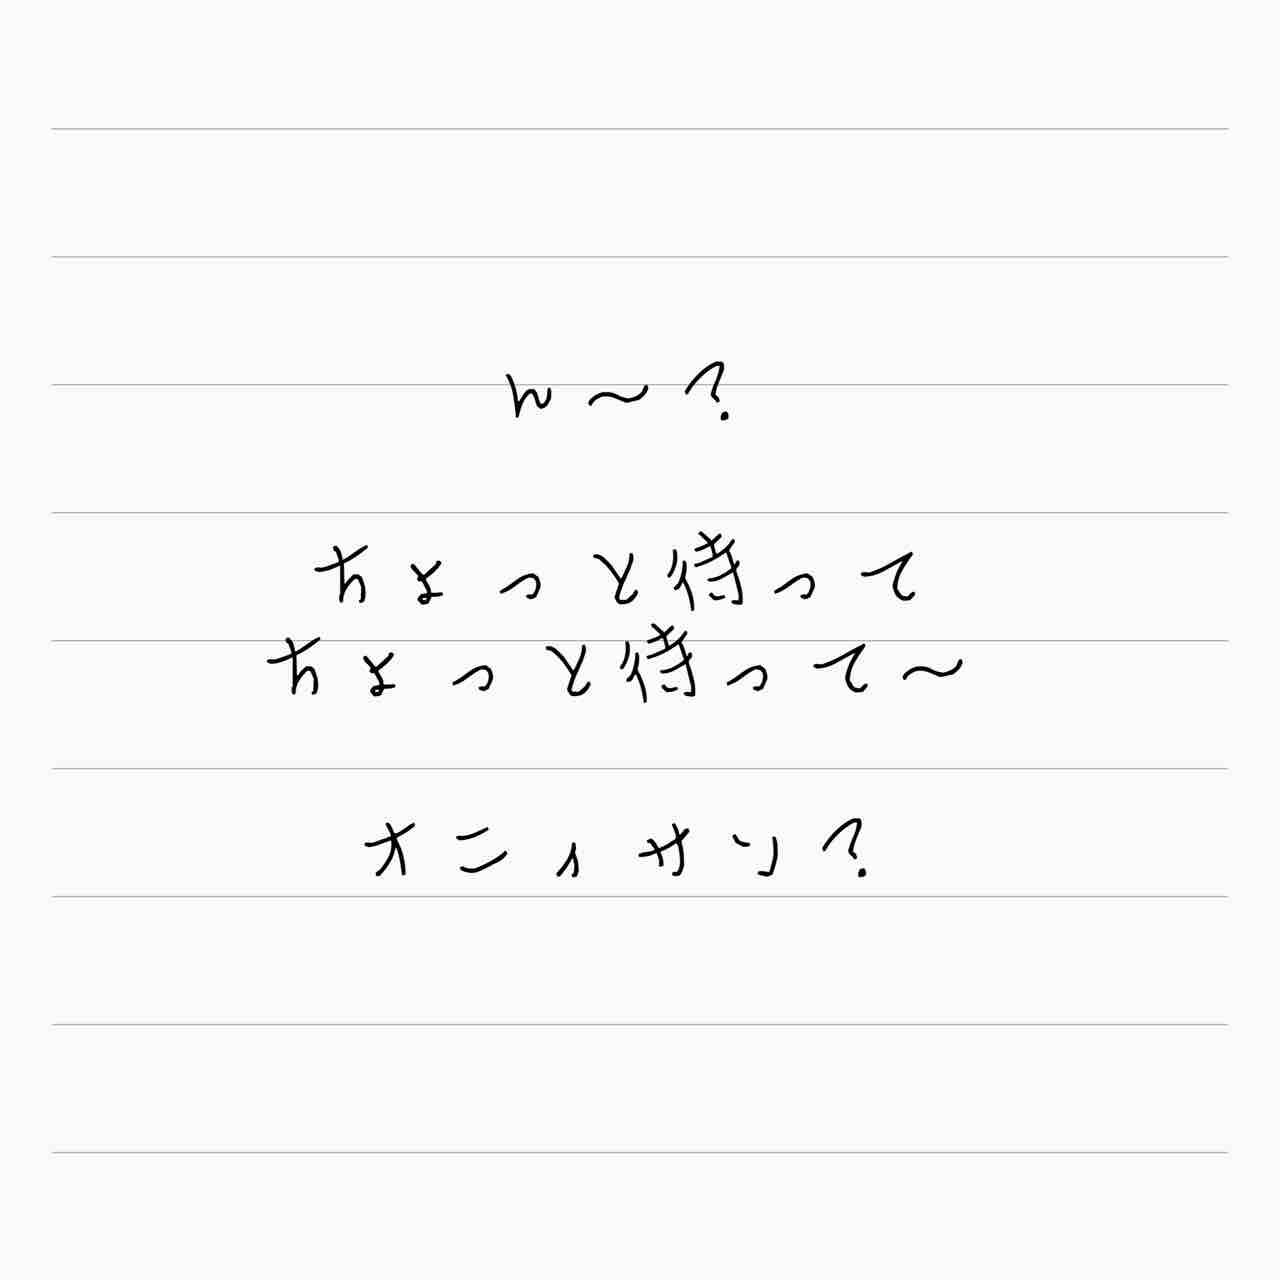 ん〜?
ちょっと待って
ちょっと待って〜
オニィサン?